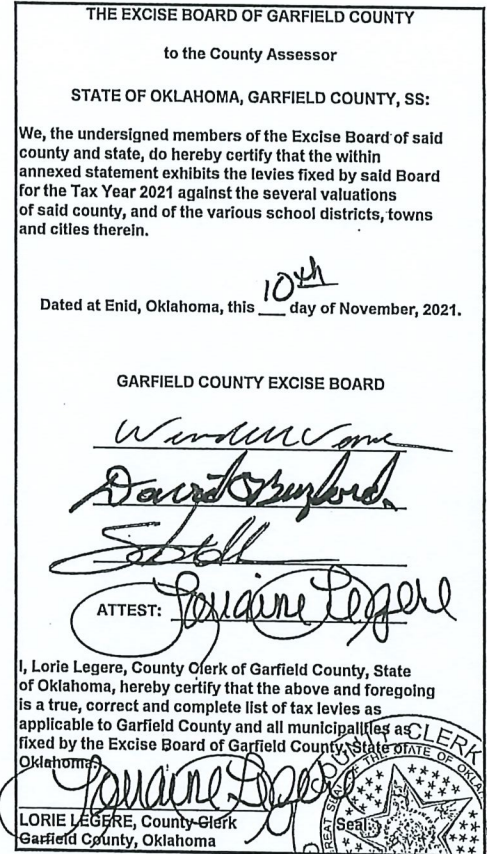 THE EXCISE BOARD OF GARFIELD COUNTY
to the County Assessor
STATE OF OKLAHOMA, GARFIELD COUNTY, SS:
We, the undersigned members of the Excise Board of said
county and state, do hereby certify that the within
annexed statement exhibits the levies fixed by said Board
for the Tax Year 2021 against the several valuations
of said county, and of the various school districts, towns
and cities therein.
Dated at Enid, Oklahoma, this 10th day of November, 2021.
GARFIELD COUNTY EXCISE BOARD
David
ATTEST: Lorraine Legere
I, Lorie Legere, County Clerk of Garfield County, State
of Oklahoma, hereby certify that the above and foregoing
is a true, correct and complete list of tax levies as
applicable to Garfield County and all municipalities as
fixed by the Excise Board of Garfield County, State of
Oklahoma.
Lorraine Legere
LORIE LEGERE, County Clerk
Garfield County, Oklahoma
COUNTY CLERK
SEAL OF THE STATE OF
Seal